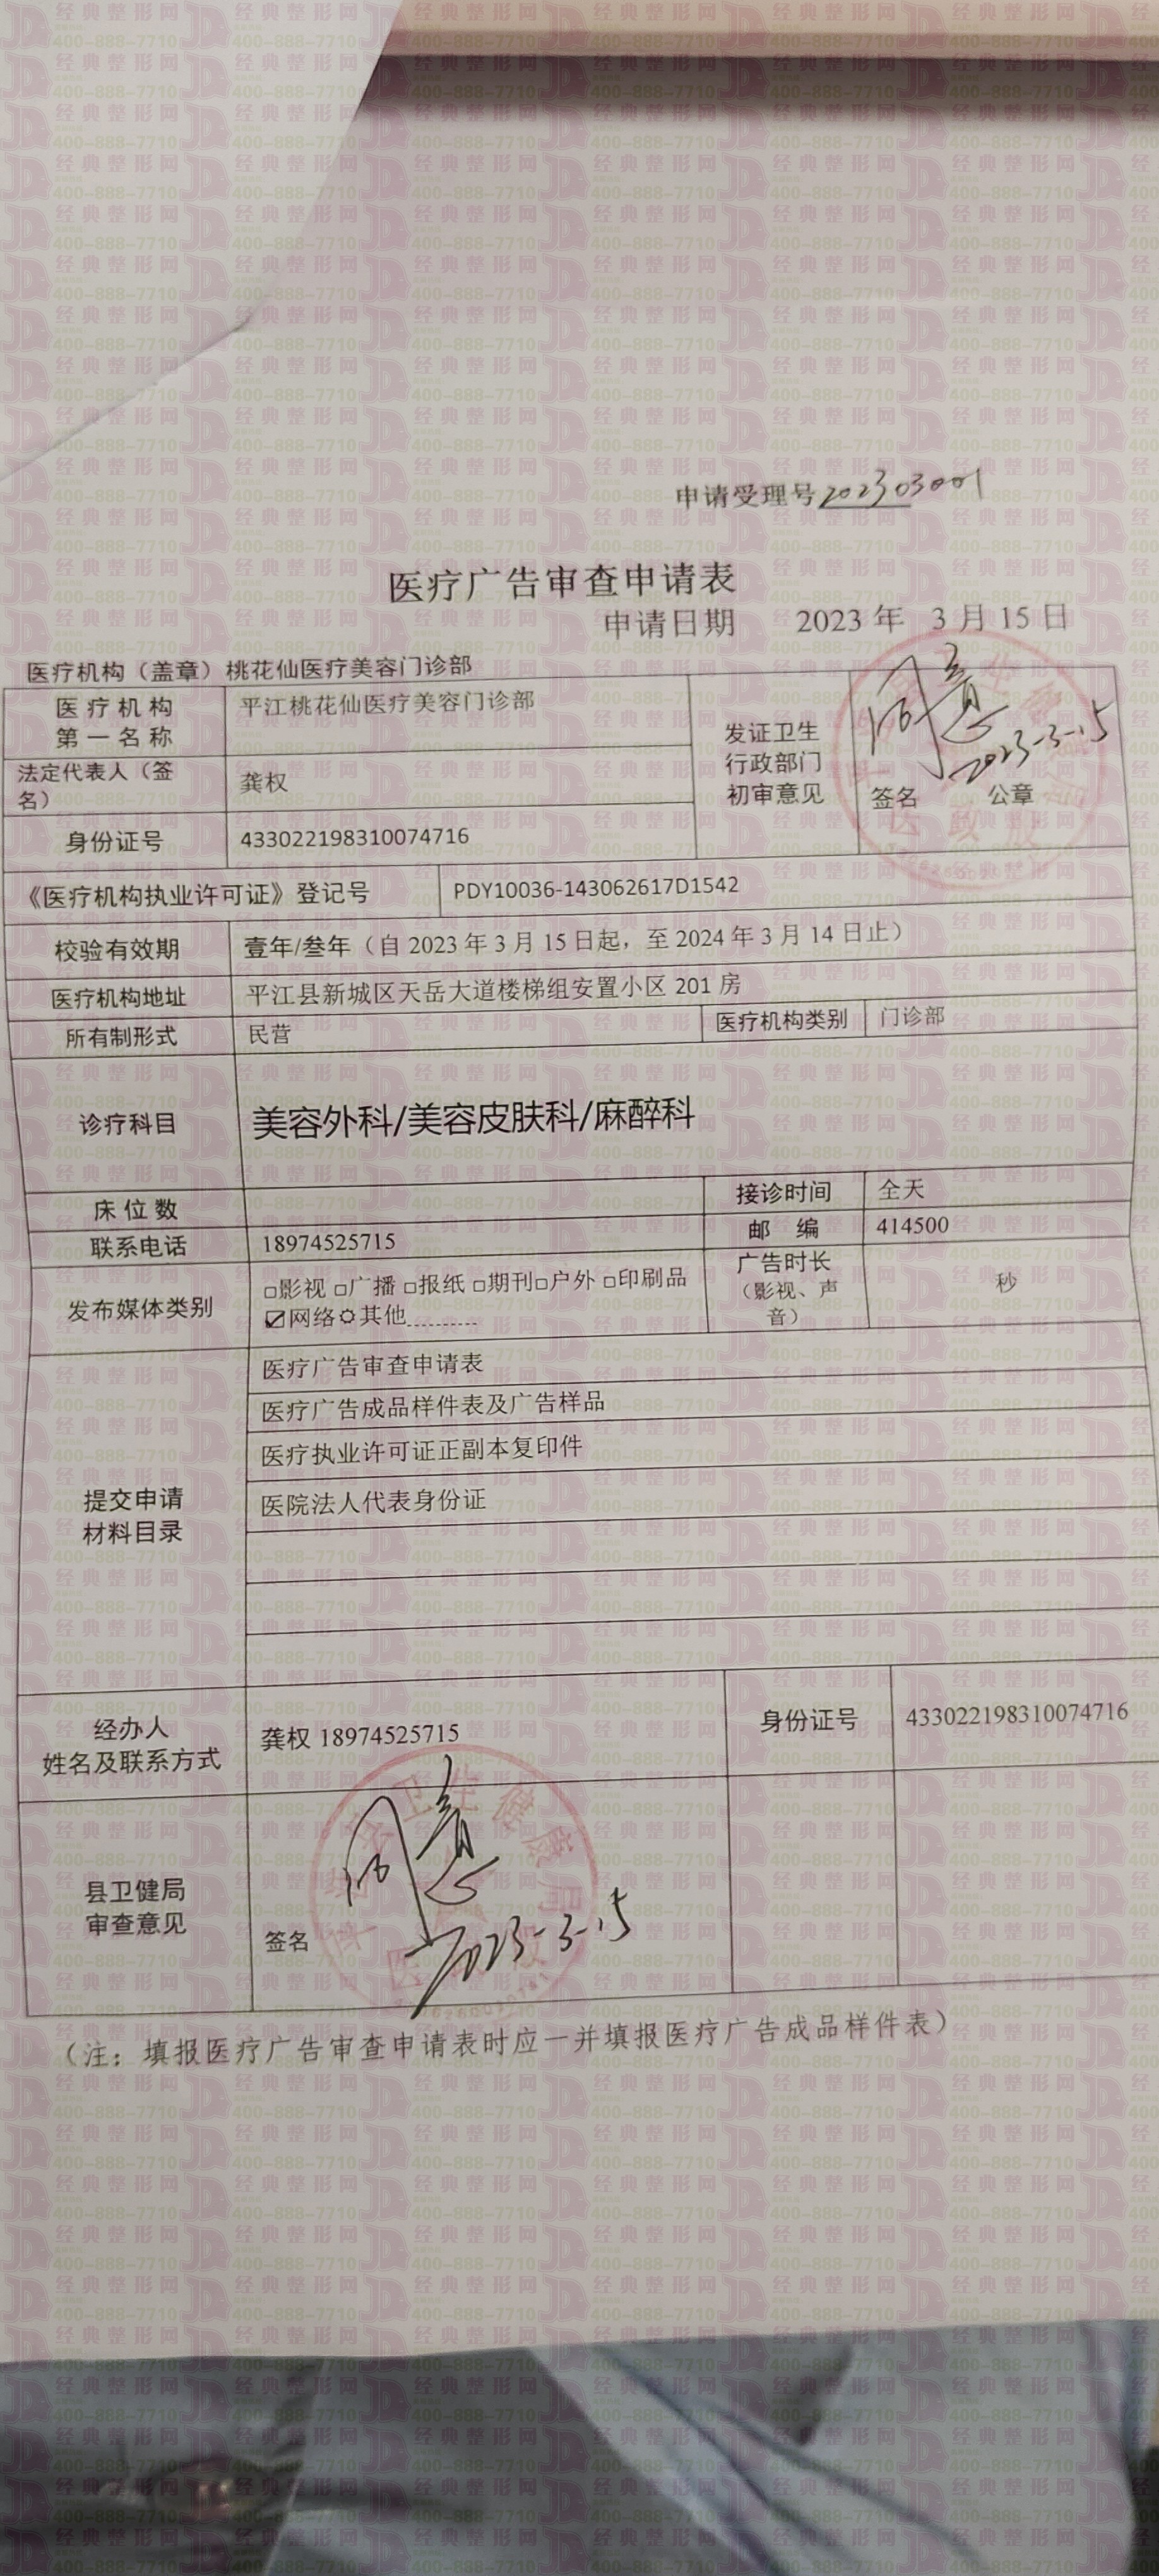 申请受理号202303001
医疗广告审查申请表
申请日期 2023 年 3 月 15 日
医疗机构（盖章）桃花仙医疗美容门诊部
医疗机构
第一名称
平江桃花仙医疗美容门诊部
发证卫生
行政部门
初审意见
同意
2023-3-15
签名 公章
法定代表人（签
名）
龚权
身份证号
433022198310074716
《医疗机构执业许可证》登记号
PDY10036-143062617D1542
校验有效期
壹年/叁年（自 2023 年 3 月 15 日起，至 2024 年 3 月 14 日止）
医疗机构地址
平江县新城区天岳大道楼梯组安置小区 201 房
所有制形式
民营
医疗机构类别
门诊部
诊疗科目
美容外科/美容皮肤科/麻醉科
床位数
接诊时间
全天
联系电话
18974525715
邮 编
414500
发布媒体类别
□影视 □广播 □报纸 □期刊□户外 □印刷品
☑网络✡其他
广告时长
（影视、声
音）
秒
提交申请
材料目录
医疗广告审查申请表
医疗广告成品样件表及广告样品
医疗执业许可证正副本复印件
医院法人代表身份证
经办人
姓名及联系方式
龚权 18974525715
身份证号
433022198310074716
县卫健局
审查意见
签名
同意
2023-3-15
（注：填报医疗广告审查申请表时应一并填报医疗广告成品样件表）
经典整形网
400-888-7710